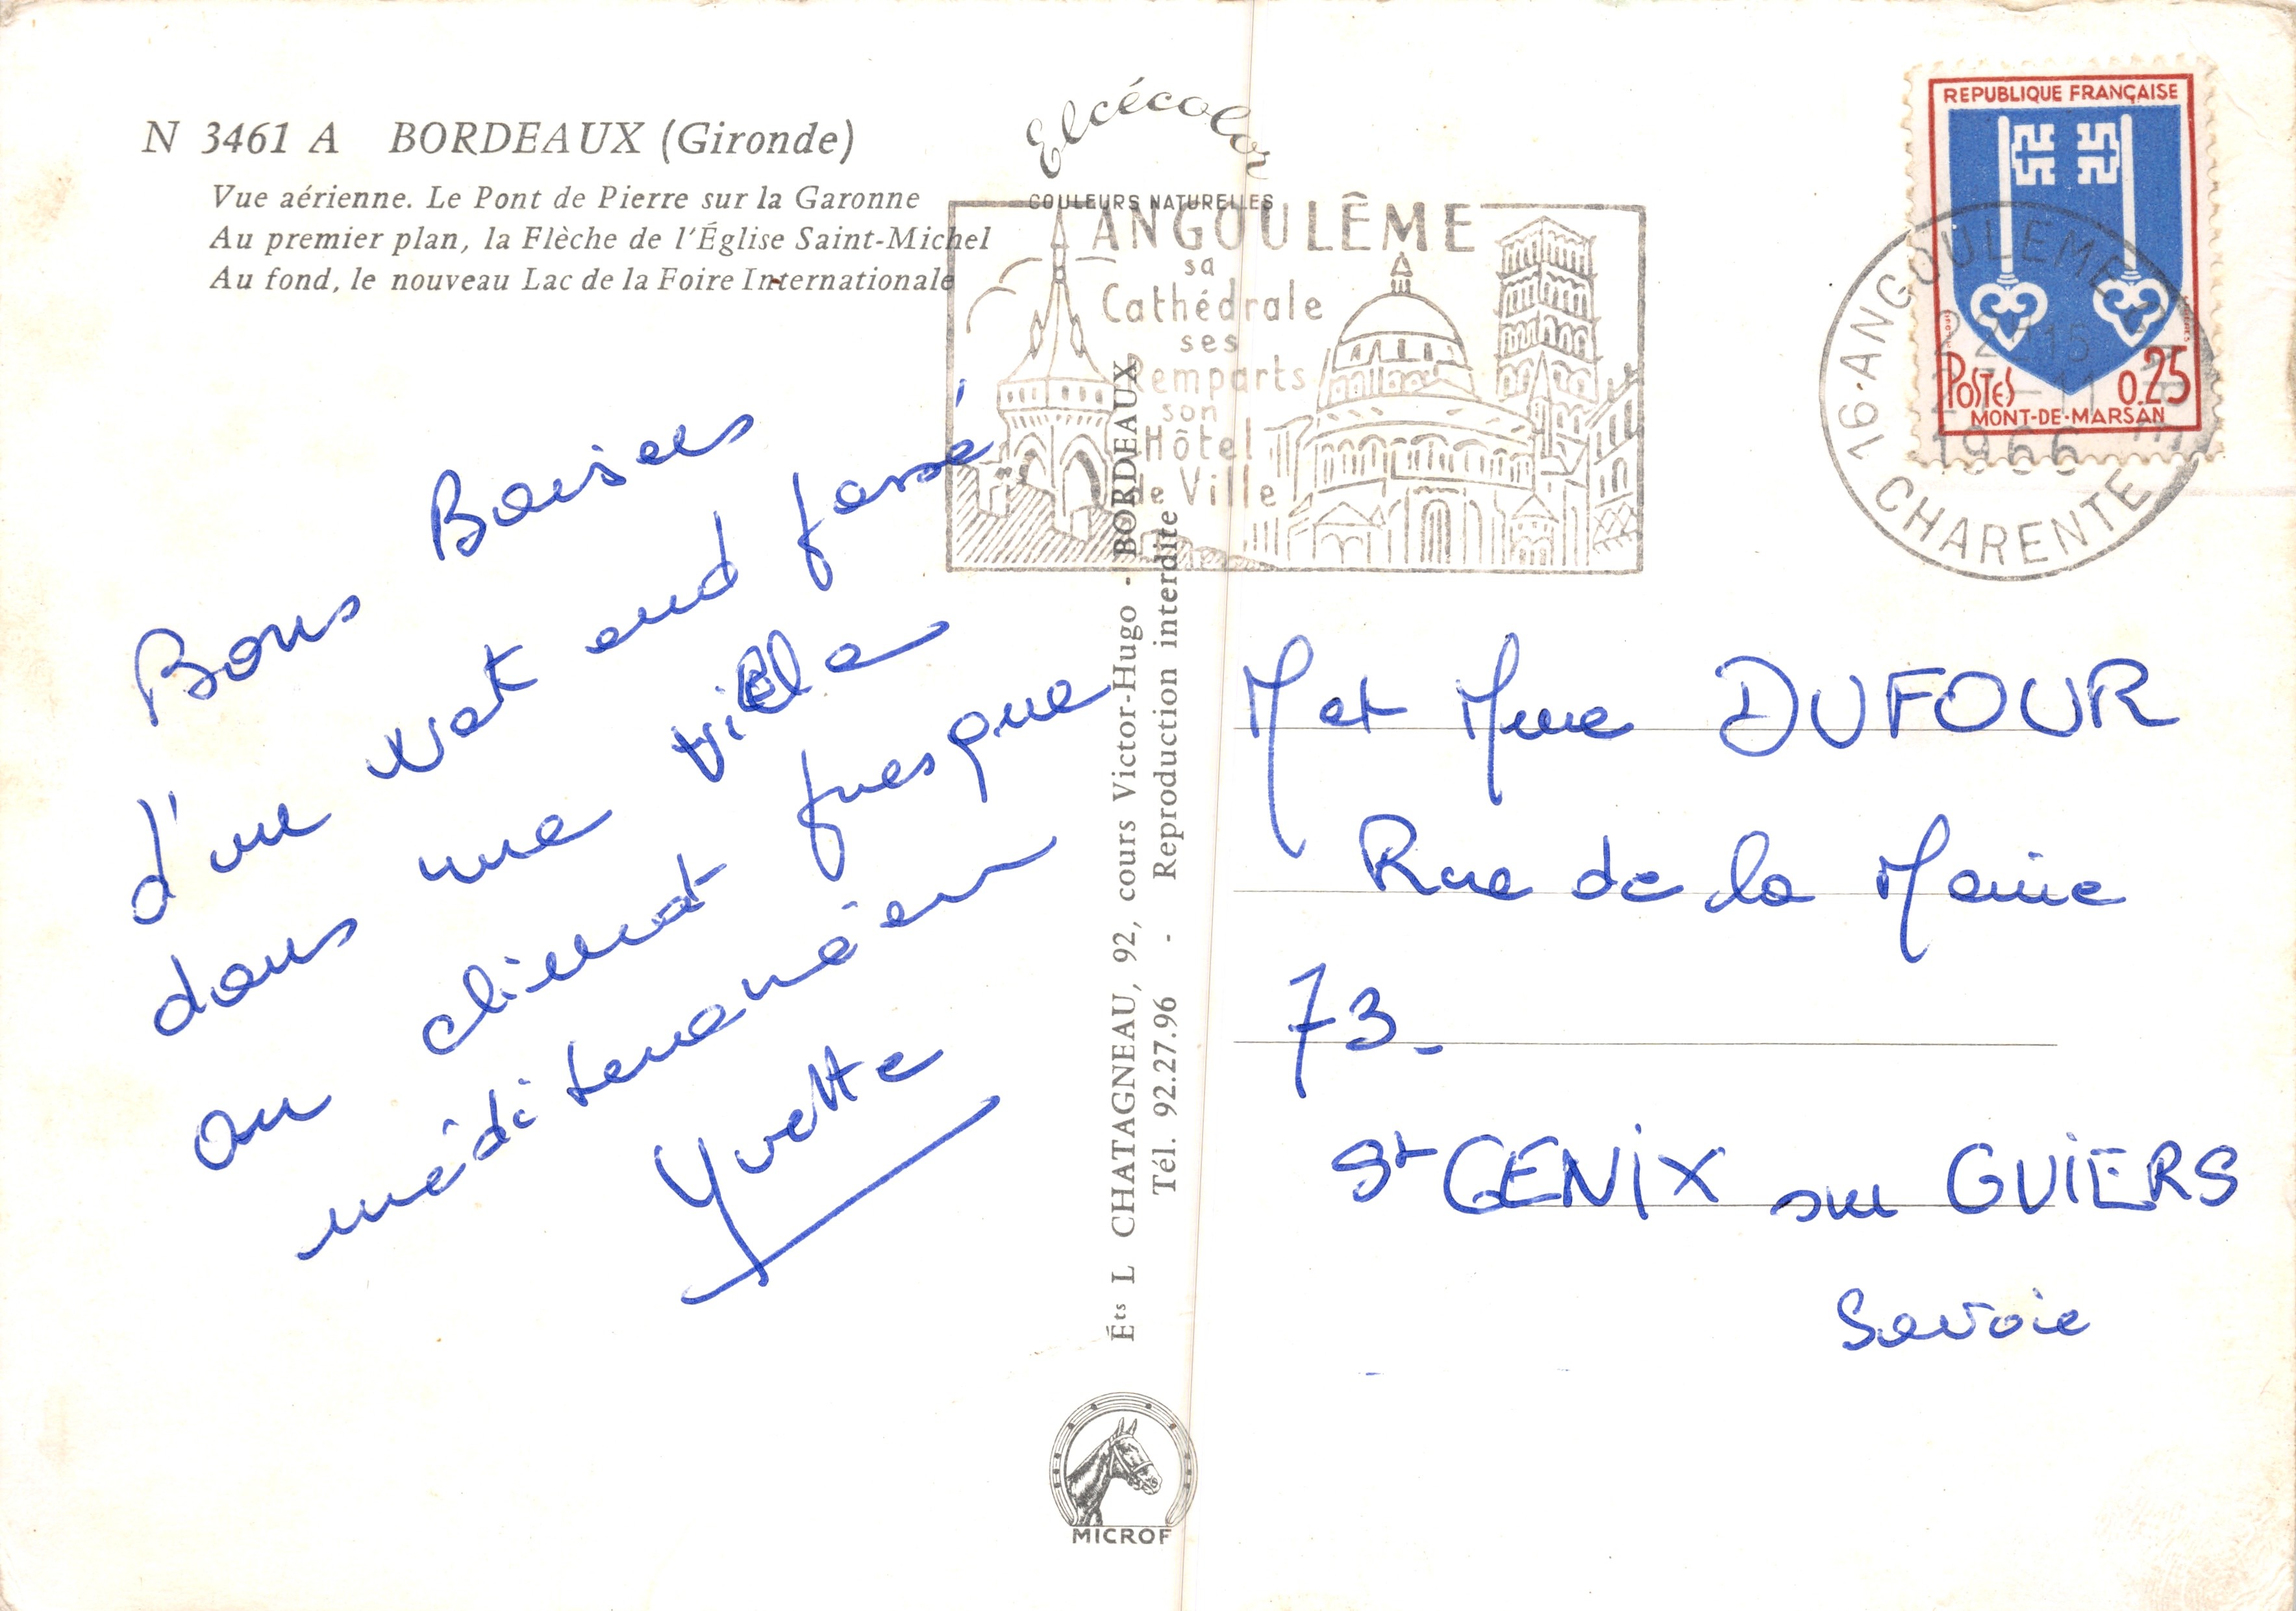 N 3461 A BORDEAUX (Gironde)
Vue aérienne. Le Pont de Pierre sur la Garonne
Au premier plan, la Flèche de l'Église Saint-Michel
Au fond, le nouveau Lac de la Foire Internationale
Elcécolor
COULEURS NATURELLES
ANGOULÊME
sa
Cathédrale
ses
remparts
son
Hôtel
de Ville
REPUBLIQUE FRANÇAISE
POSTES 0.25
MONT-DE-MARSAN
16·ANGOULEME
22H15
1966
CHARENTE
Bons Baisers
d'un wek end passé
dans une ville
au climat presque
méditerranéen
Yvette
Éts L CHATAGNEAU, 92, cours Victor-Hugo - BORDEAUX
Tél. 92.27.96 - Reproduction interdite
M et Mme DUFOUR
Rue de la Mairie
73_
St GENIX sur GUIERS
Savoie
MICROF